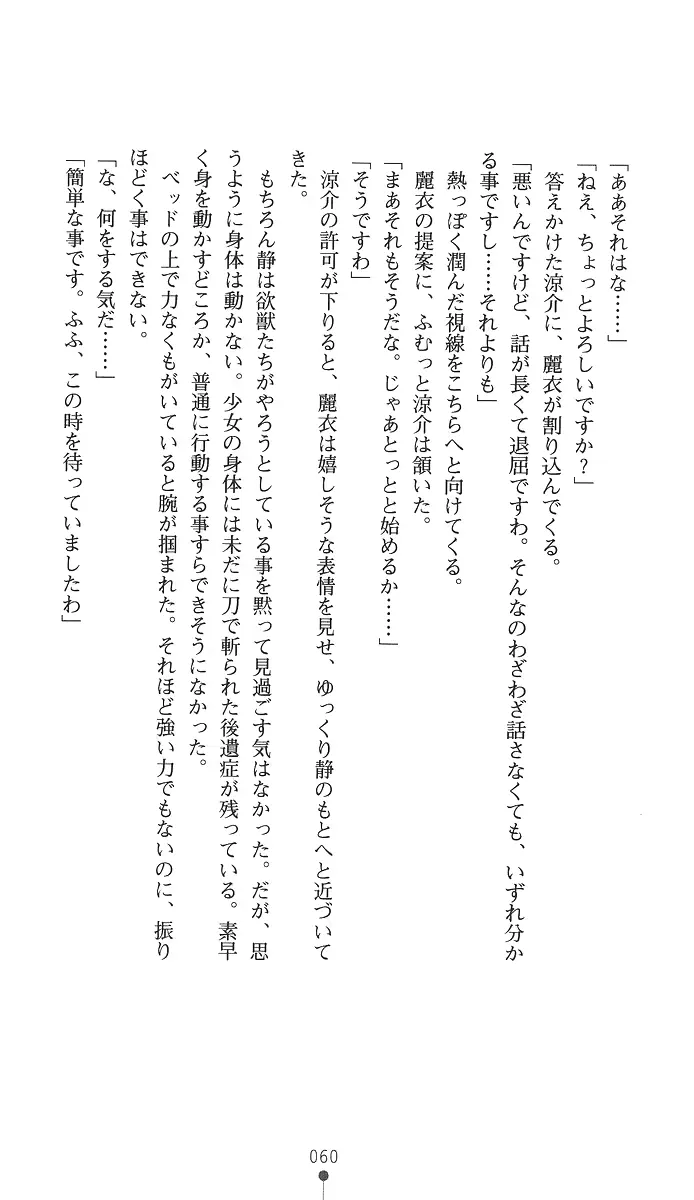 「ああそれはな……」
「ねえ、ちょっとよろしいですか？」
　答えかけた涼介に、麗衣が割り込んでくる。
「悪いんですけど、話が長くて退屈ですわ。そんなのわざわざ話さなくても、いずれ分か
る事ですし……それよりも」
　熱っぽく潤んだ視線をこちらへと向けてくる。
　麗衣の提案に、ふむっと涼介は頷いた。
「まあそれもそうだな。じゃあとっとと始めるか……」
「そうですわ」
　涼介の許可が下りると、麗衣は嬉しそうな表情を見せ、ゆっくり静のもとへと近づいて
きた。
　もちろん静は欲獣たちがやろうとしている事を黙って見過ごす気はなかった。だが、思
うように身体は動かない。少女の身体には未だに刀で斬られた後遺症が残っている。素早
く身を動かすどころか、普通に行動する事すらできそうになかった。
　ベッドの上で力なくもがいていると腕が掴まれた。それほど強い力でもないのに、振り
ほどく事はできない。
「な、何をする気だ……」
「簡単な事です。ふふ、この時を待っていましたわ」
060